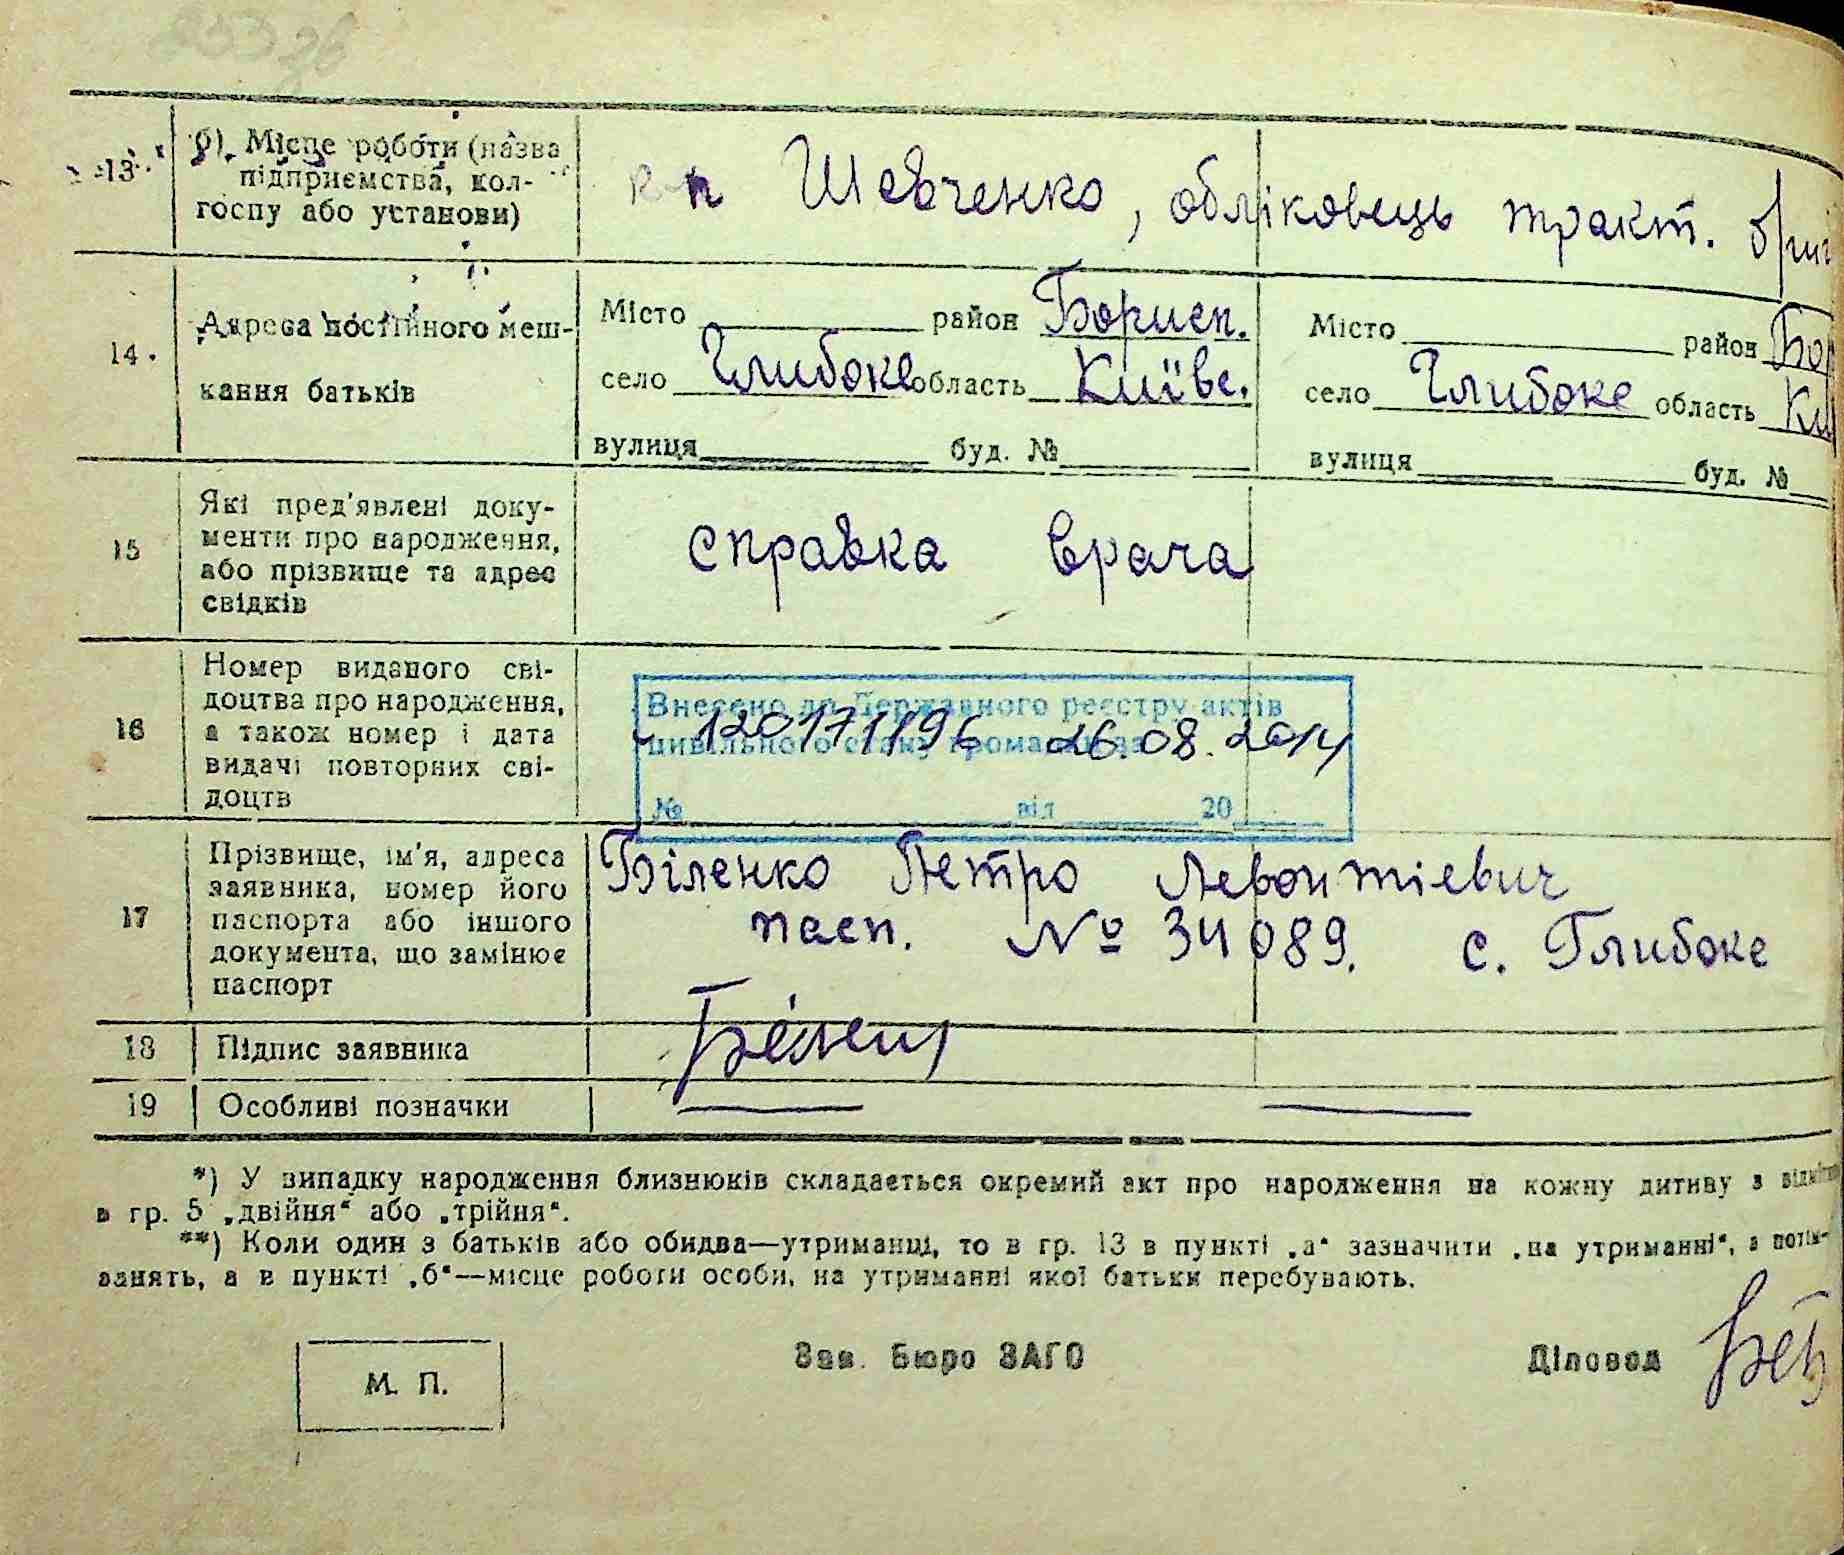 13
б). Місце роботи (назва
підприємства, кол-
госпу або установи)
к-п Шевченко, обліковець тракт. бриг
14.
Адреса постійного меш-
кання батьків
Місто район Борисп.
село Глибоке область Київс.
вулиця буд. №
Місто район Бор
село Глибоке область Ки
вулиця буд. №
15
Які пред'явлені доку-
менти про народження,
або прізвище та адрес
свідків
справка врача
16
Номер виданого сві-
доцтва про народження,
а також номер і дата
видачі повторних сві-
доцтв
Внесено до Державного реєстру актів
цивільного стану громадян за
120171196 26.08.2014
№ від 20
17
Прізвище, ім'я, адреса
заявника, номер його
паспорта або іншого
документа, що замінює
паспорт
Біленко Петро Левонтіевич
пасп. № 34089. с. Глибоке
18
Підпис заявника
19
Особливі позначки
*) У випадку народження близнюків складається окремий акт про народження на кожну дитину з відміткою
в гр. 5 „двійня“ або „трійня“.
**) Коли один з батьків або обидва—утриманці, то в гр. 13 в пункті „а“ зазначити „на утриманні“, а потім-
занять, а в пункті „б“—місце роботи особи, на утриманні якої батьки перебувають.
М. П.
Зав. Бюро ЗАГС
Діловод